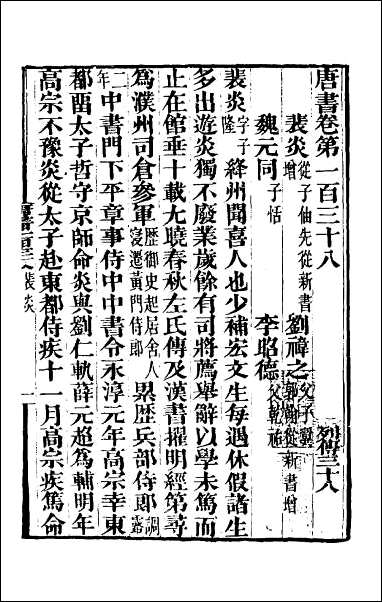 唐書卷第一百三十八 列傳三十八
裴炎 從子伷先從新書增 劉禕之 父子翼 郭翰從新書增
魏元同 子恬 李昭德 父乾祐
裴炎字子隆絳州聞喜人也少補宏文生每遇休假諸生
多出遊炎獨不廢業歲餘有司將薦舉辭以學未篤而
止在館垂十載尢曉春秋左氏傳及漢書擢明經第尋
爲濮州司倉參軍歷御史起居舍人寖遷黃門侍郎累歷兵部侍郎調露
二年中書門下平章事侍中中書令永淳元年高宗幸東
都畱太子哲守京師命炎與劉仁軌薛元超爲輔明年
高宗不豫炎從太子赴東都侍疾十一月高宗疾篤命
裴炎